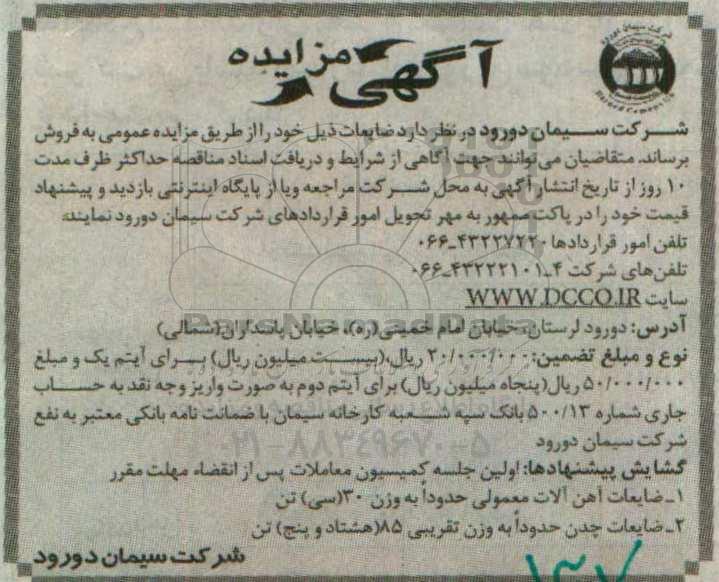 شرکت سیمان دورود
Doroud Cement Co
آگهی مزایده
شرکت سیمان دورود در نظر دارد ضایعات ذیل خود را از طریق مزایده عمومی به فروش
برساند. متقاضیان می‌توانند جهت آگاهی از شرایط و دریافت اسناد مناقصه حداکثر ظرف مدت
۱۰ روز از تاریخ انتشار آگهی به محل شرکت مراجعه ویا از پایگاه اینترنتی بازدید و پیشنهاد
قیمت خود را در پاکت ممهور به مهر تحویل امور قراردادهای شرکت سیمان دورود نمایند.
تلفن امور قراردادها ۴۳۲۲۷۲۲۰-۰۶۶
تلفن‌های شرکت ۴-۴۳۲۲۲۱۰۱-۰۶۶
سایت WWW.DCCO.IR
آدرس: دورود لرستان، خیابان امام خمینی(ره)، خیابان پاسداران(شمالی)
نوع و مبلغ تضمین: ۲۰/۰۰۰/۰۰۰ ریال،(بیست میلیون ریال) برای آیتم یک و مبلغ
۵۰/۰۰۰/۰۰۰ ریال(پنجاه میلیون ریال) برای آیتم دوم به صورت واریز وجه نقد به حساب
جاری شماره ۵۰۰/۱۳ بانک سپه شعبه کارخانه سیمان با ضمانت نامه بانکی معتبر به نفع
شرکت سیمان دورود
گشایش پیشنهادها: اولین جلسه کمیسیون معاملات پس از انقضاء مهلت مقرر
۱- ضایعات آهن آلات معمولی حدوداً به وزن ۳۰(سی) تن
۲- ضایعات چدن حدوداً به وزن تقریبی ۸۵(هشتاد و پنج) تن
شرکت سیمان دورود
ParsNamadData
۰۲۱-۸۸۳۴۹۶۷۰-۵
۱۳۷